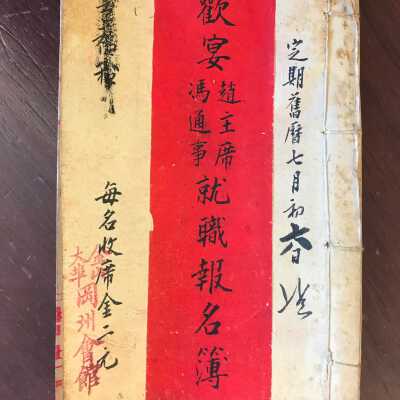 定期舊曆七月初
歡宴趙主席馮通事就職報名簿
每名收席金二元
大埠岡州會館